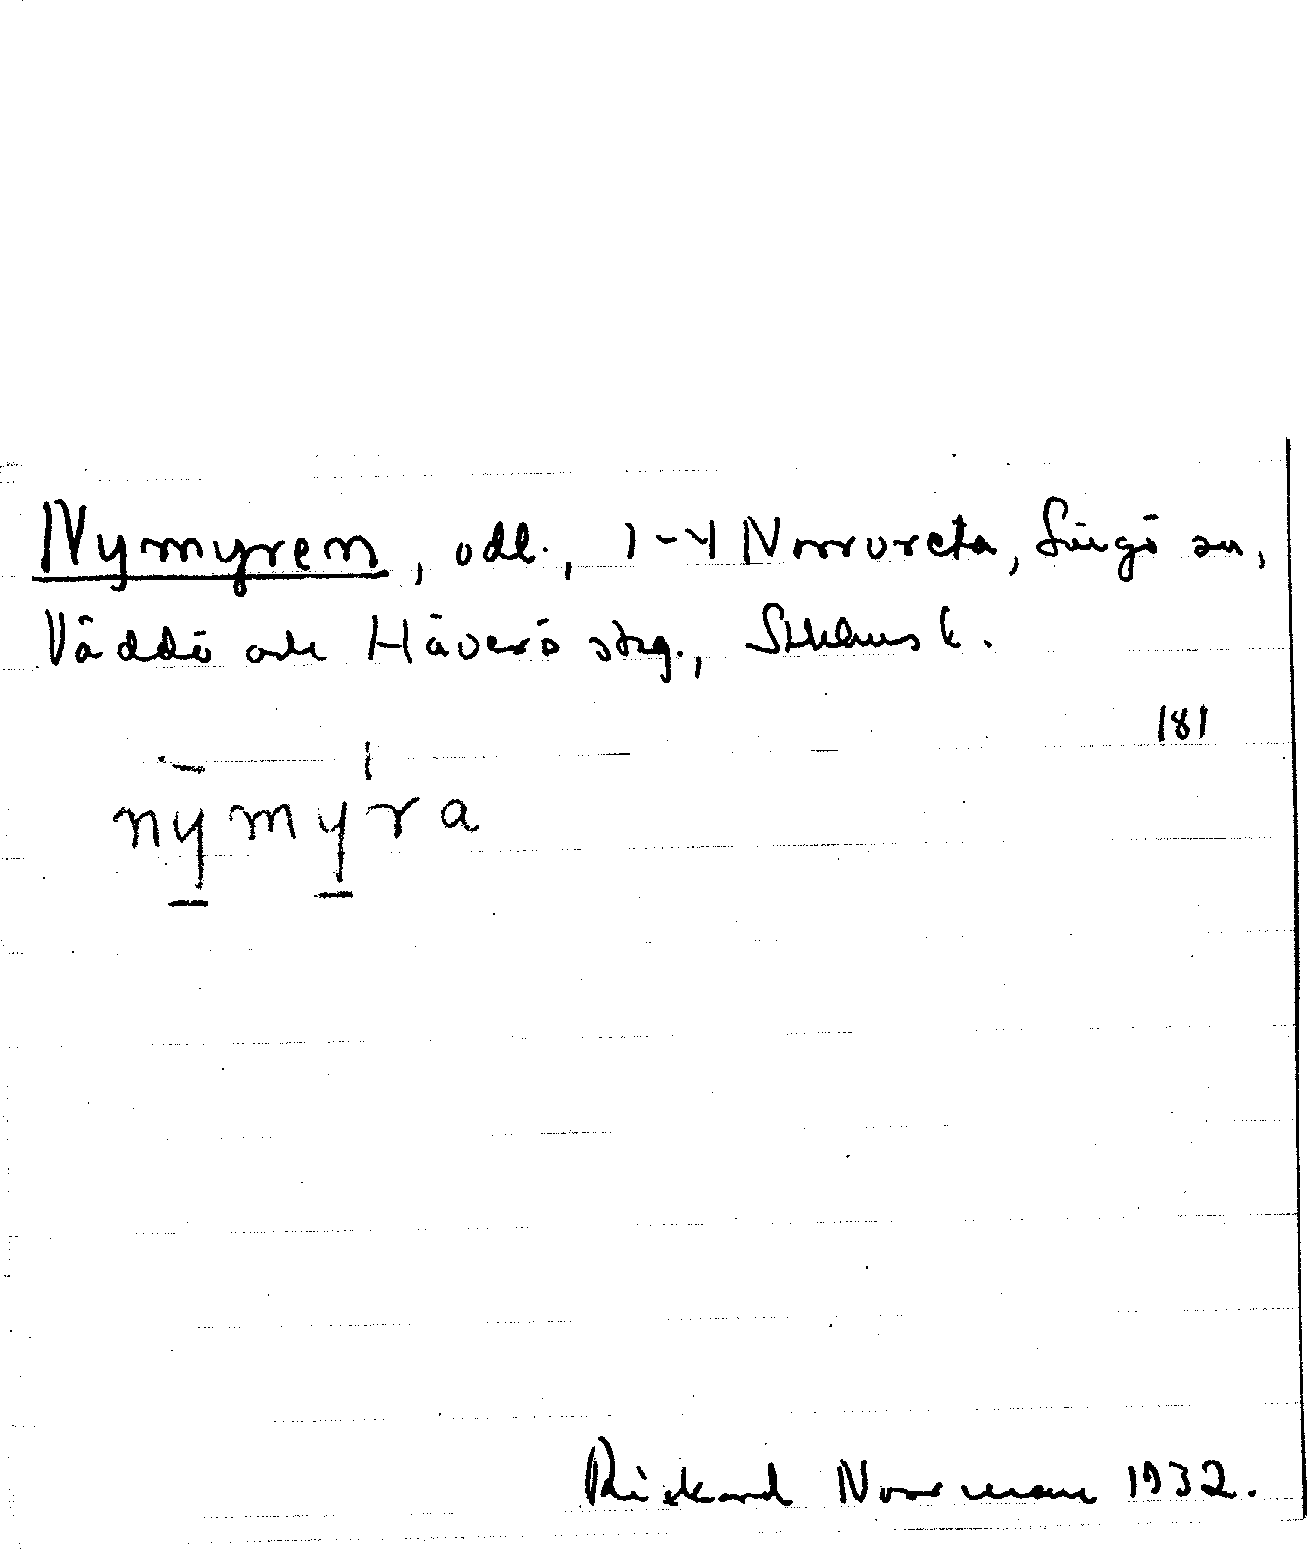 Nymyren, odl., 1-4 Norrvreta, Singö sn,
Väddö och Häverö skg., Sthlms l.
181
nymyra
Rickard Norrman 1932.